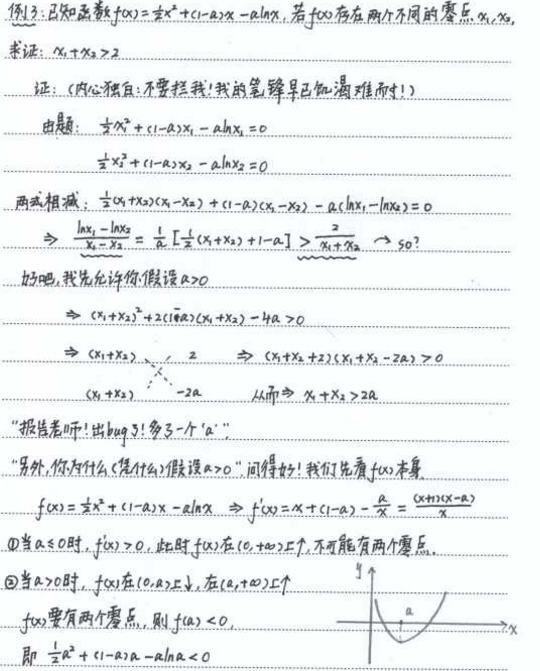 例3:已知函数f(x)=½x²+(1-a)x-alnx,若f(x)存在两个不同的零点x₁,x₂,
求证:x₁+x₂>2
证:(内心独白:不要拦我!我的笔锋早已饥渴难耐!)
由题:½x₁²+(1-a)x₁-alnx₁=0
½x₂²+(1-a)x₂-alnx₂=0
两式相减:½(x₁+x₂)(x₁-x₂)+(1-a)(x₁-x₂)-a(lnx₁-lnx₂)=0
⇒ (lnx₁-lnx₂)/(x₁-x₂)=1/a[½(x₁+x₂)+1-a]>2/(x₁+x₂) → so?
好吧,我先允许你假设a>0
⇒(x₁+x₂)²+2(1-a)(x₁+x₂)-4a>0
⇒(x₁+x₂) 2 ⇒(x₁+x₂+2)(x₁+x₂-2a)>0
(x₁+x₂) -2a 从而⇒x₁+x₂>2a
"报告老师!出bug了!多了一个'a'".
"另外,你为什么(凭什么)假设a>0".问得好!我们先看f(x)本身
f(x)=½x²+(1-a)x-alnx ⇒f'(x)=x+(1-a)-a/x=(x+1)(x-a)/x
①当a≤0时,f'(x)>0,此时f(x)在(0,+∞)上↑,不可能有两个零点.
②当a>0时,f(x)在(0,a)上↓,在(a,+∞)上↑
y
a
f(x)要有两个零点,则f(a)<0,
x
即 ½a²+(1-a)a-alna<0